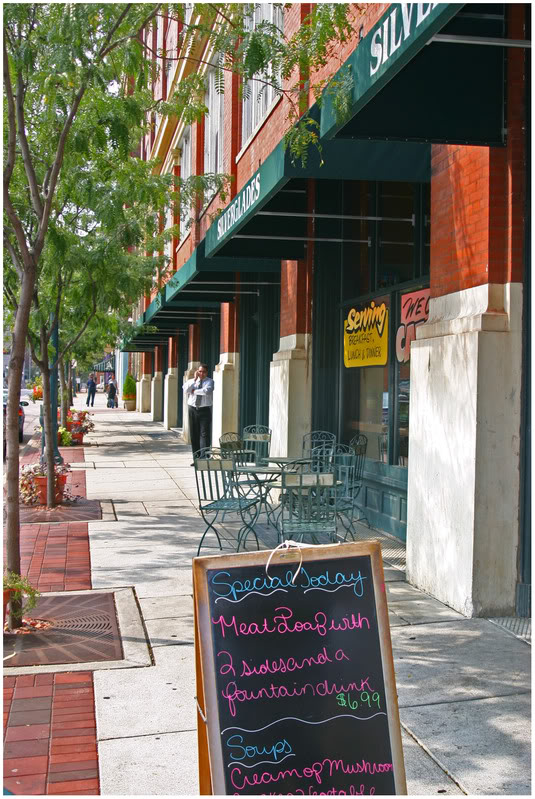 SILVE
SILVERGLADES
Serving
BREAKFAST,
LUNCH & DINNER
WE
Special Today
Meat Loaf with
2 sides and a
fountain drink
$6.99
Soups
Cream of Mushroom
Vegetable